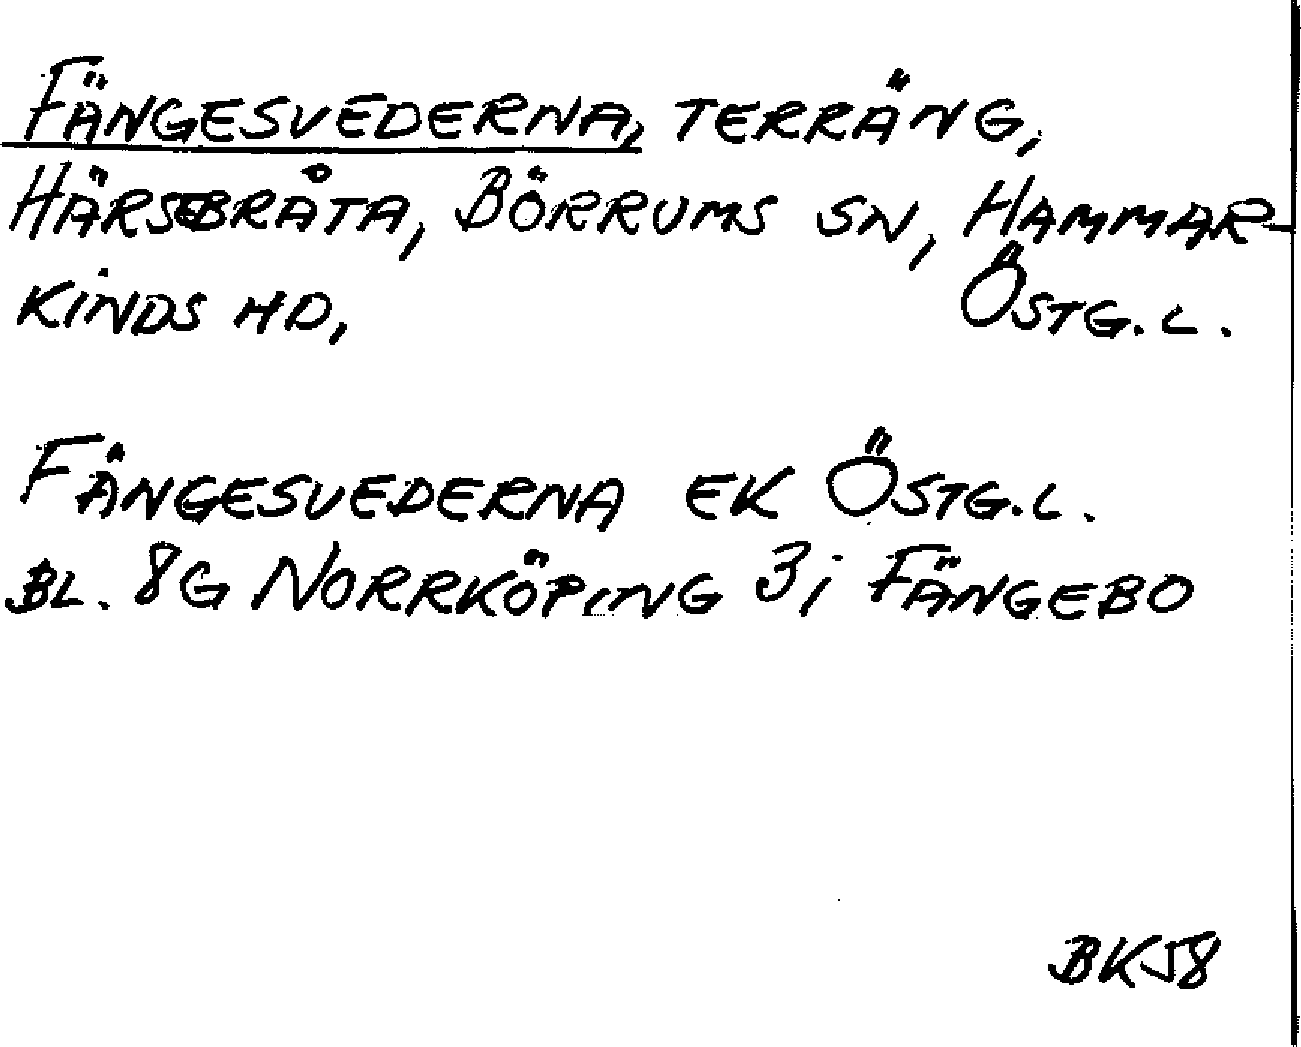 FÄNGESVEDERNA, TERRÄNG,
HÄRSEBRÅTA, BÖRRUMS SN, HAMMAR-
KINDS HD, ÖSTG.L.
FÄNGESVEDERNA EK ÖSTG.L.
BL. 8G NORRKÖPING 3i FÄNGEBO
BK58